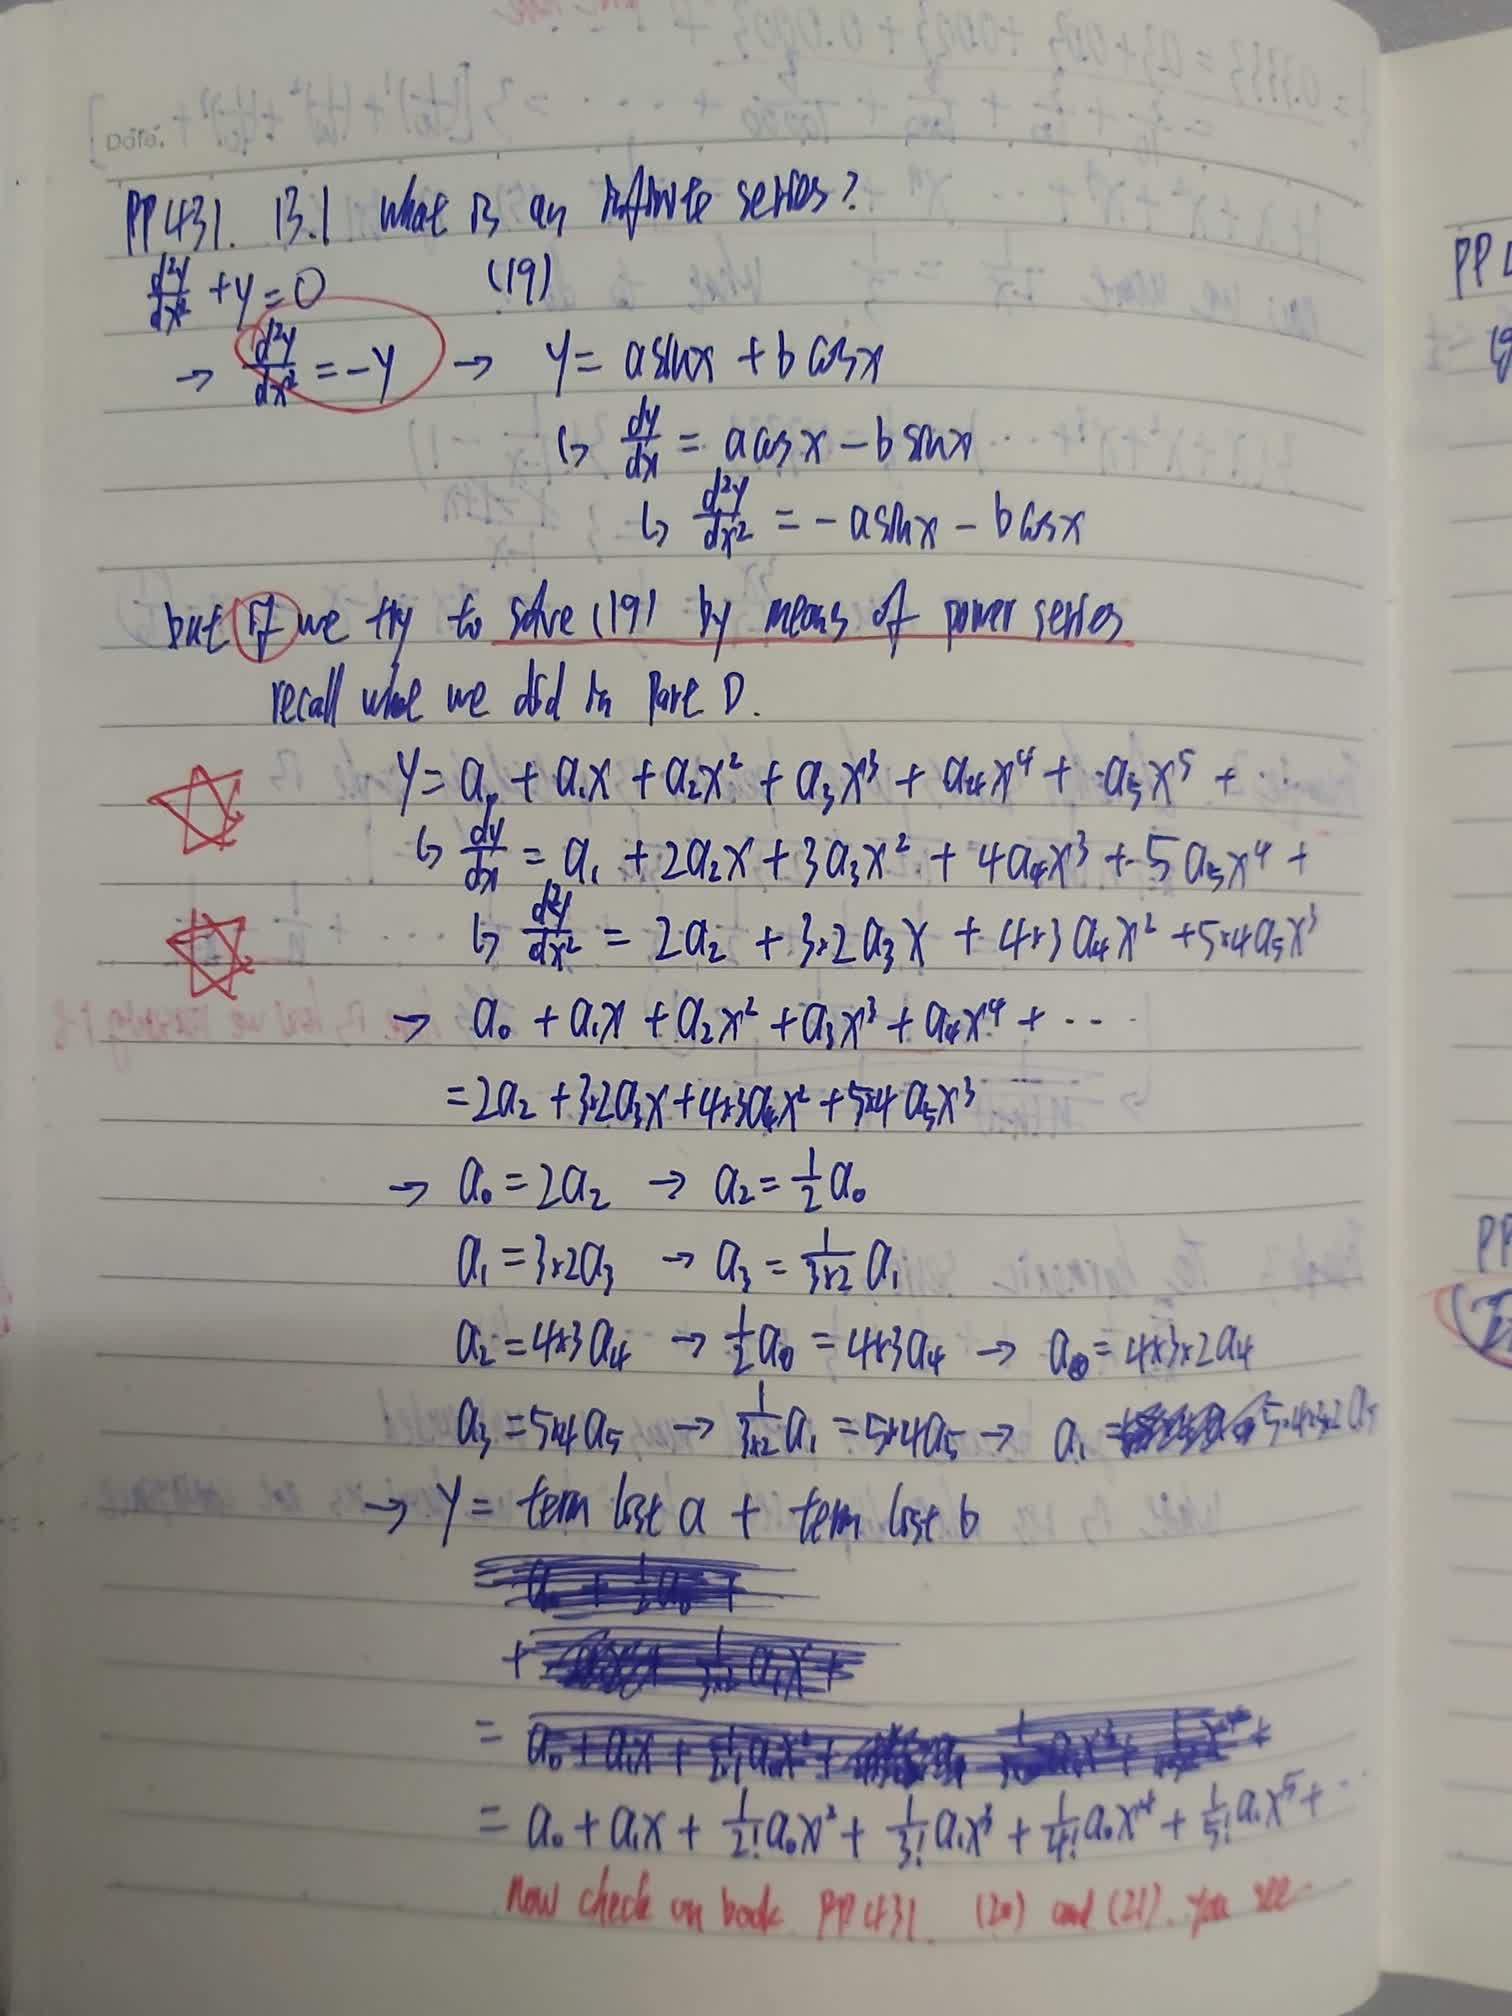 Date.
PP431. 13.1 What is an infinite series?
d²y/dx² + y = 0 (19)
→ d²y/dx² = -y → y = a sinx + b cosx
↳ dy/dx = a cosx - b sinx
↳ d²y/dx² = -a sinx - b cosx
but if we try to solve (19) by means of power series
recall what we did in Part D.
y = a₀ + a₁x + a₂x² + a₃x³ + a₄x⁴ + a₅x⁵ + ...
↳ dy/dx = a₁ + 2a₂x + 3a₃x² + 4a₄x³ + 5a₅x⁴ +
↳ d²y/dx² = 2a₂ + 3×2a₃x + 4×3a₄x² + 5×4a₅x³
→ a₀ + a₁x + a₂x² + a₃x³ + a₄x⁴ + ...
= 2a₂ + 3×2a₃x + 4×3a₄x² + 5×4a₅x³
→ a₀ = 2a₂ → a₂ = 1/2 a₀
a₁ = 3×2a₃ → a₃ = 1/3×2 a₁
a₂ = 4×3a₄ → 1/2 a₀ = 4×3a₄ → a₀ = 4×3×2a₄
a₃ = 5×4a₅ → 1/3×2 a₁ = 5×4a₅ → a₁ = 5×4×3×2a₅
→ y = term list a + term list b
= a₀ + a₁x + 1/2! a₀x² + 1/3! a₁x³ + 1/4! a₀x⁴ + 1/5! a₁x⁵ + ...
Now check on book PP431. (20) and (21). You see